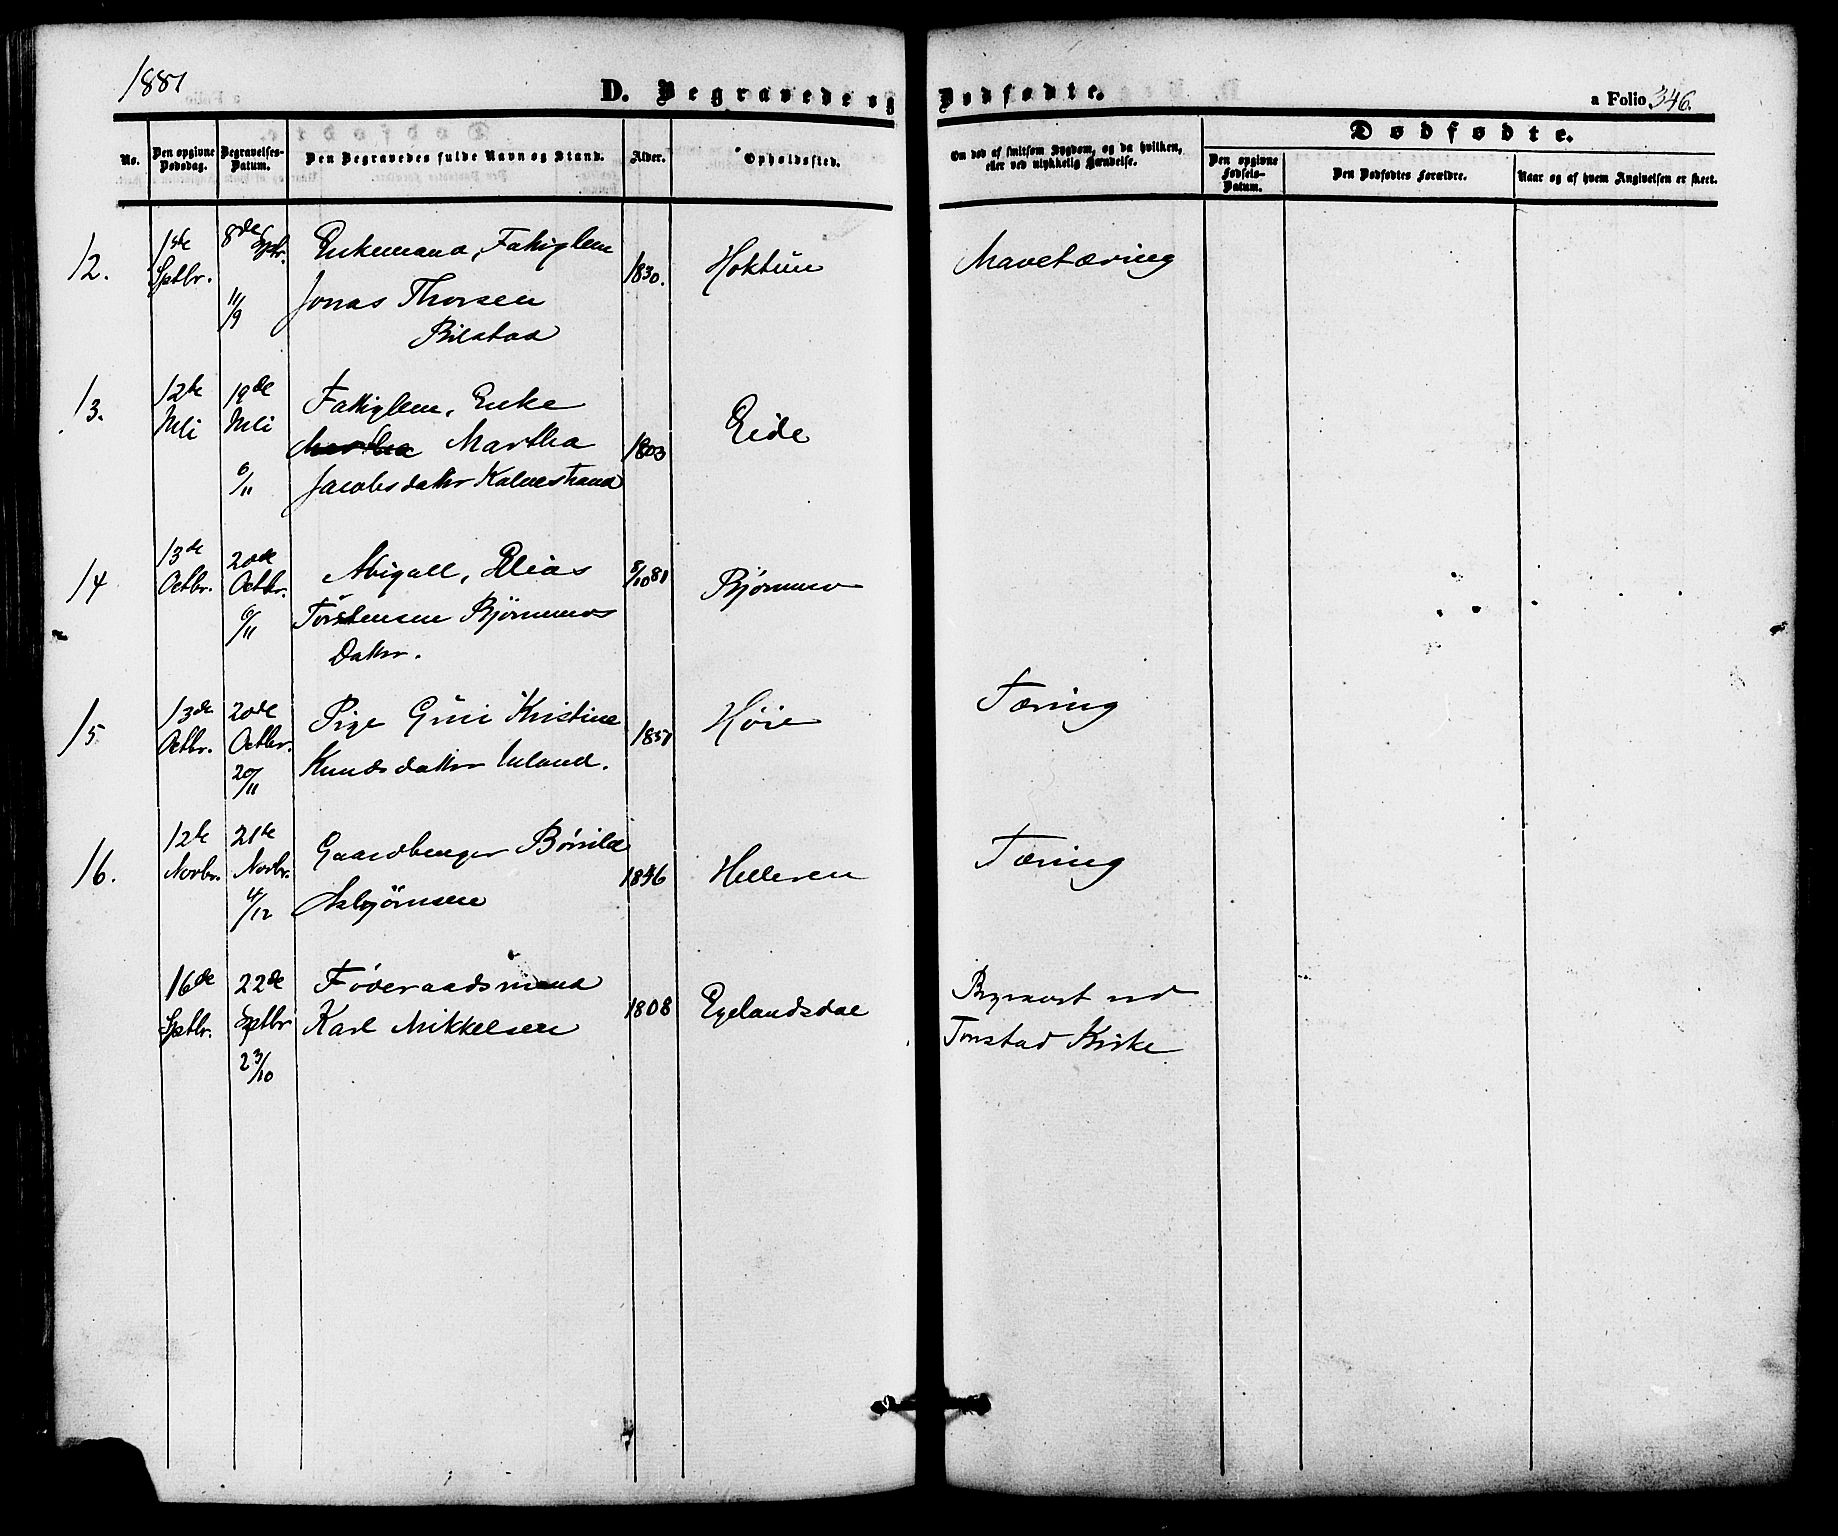 1881
D. Begravede og Dødfødte.
a Folio 346.
No.
Den opgivne Dødsdag.
Begravelses-Datum.
Den Begravedes fulde Navn og Stand.
Alder.
Opholdssted.
Om død af smitsom Sygdom, og da hvilken,
eller ved ulykkelig Hændelse.
Dødfødte.
Den opgivne Fødsels-Datum.
Den Dødfødtes Forældre.
Naar og af hvem Angivelsen er skeet.
12.
1ste Septbr.
8de Sptbr. 11/9
Enkemand, Fattiglem
Jonas Thorsen
Bilstad
1830.
Hoktün
Mavetæring
13.
12te Mli
19de Mli 6/11
Fattiglem, Enke
Martha Martha
Jacobsdatter Kalvestrand
1803
Eide
14
13de Octbr.
20de Octbr. 6/11
Abigael, Elias
Torstensen Bjørnmos
Datter.
8/10 81
Bjørnmo
15
13de Octbr.
20de Octbr. 20/11
Pige Guri Kristine
Knudsdatter Uland.
1857
Høie
Tæring
16.
12te Novbr.
21de Novbr. 4/12
Gaardbruger Børild
Asbjørnsen
1846
Helleren
Tæring
16de Sptbr.
22de Septbr 23/10
Føderaadsmand
Karl Mikkelsen
1808
Egelandsdal
Begravet ved
Tonstad Kirke